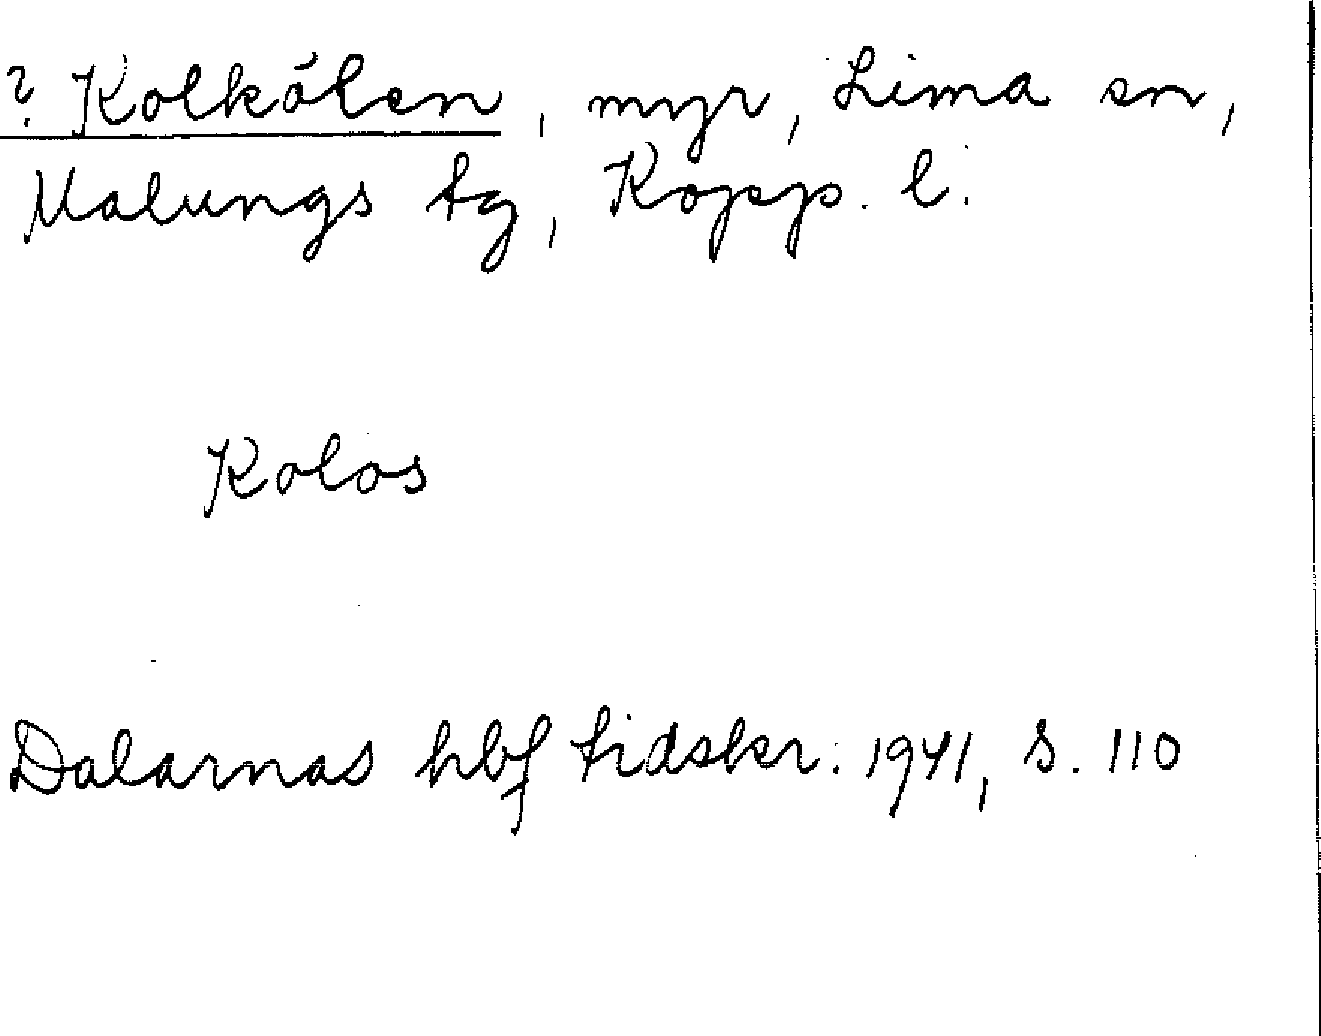 ? Kolkölen, myr, Lima sn,
Malungs tg, Kopp. l.
Kolos
Dalarnas hbf tidskr. 1941, s. 110